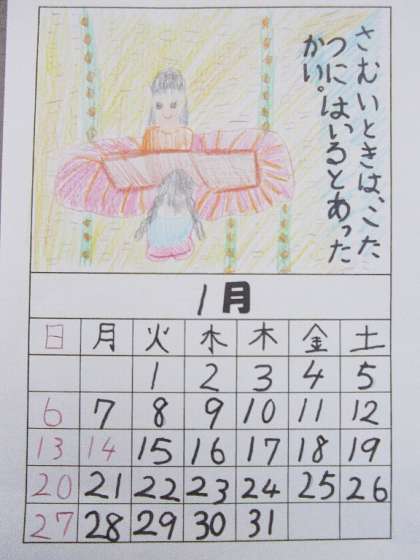 さむいときは、こた
つにはいるとあった
かい。
1月
日 月 火 水 木 金 土
1 2 3 4 5
6 7 8 9 10 11 12
13 14 15 16 17 18 19
20 21 22 23 24 25 26
27 28 29 30 31